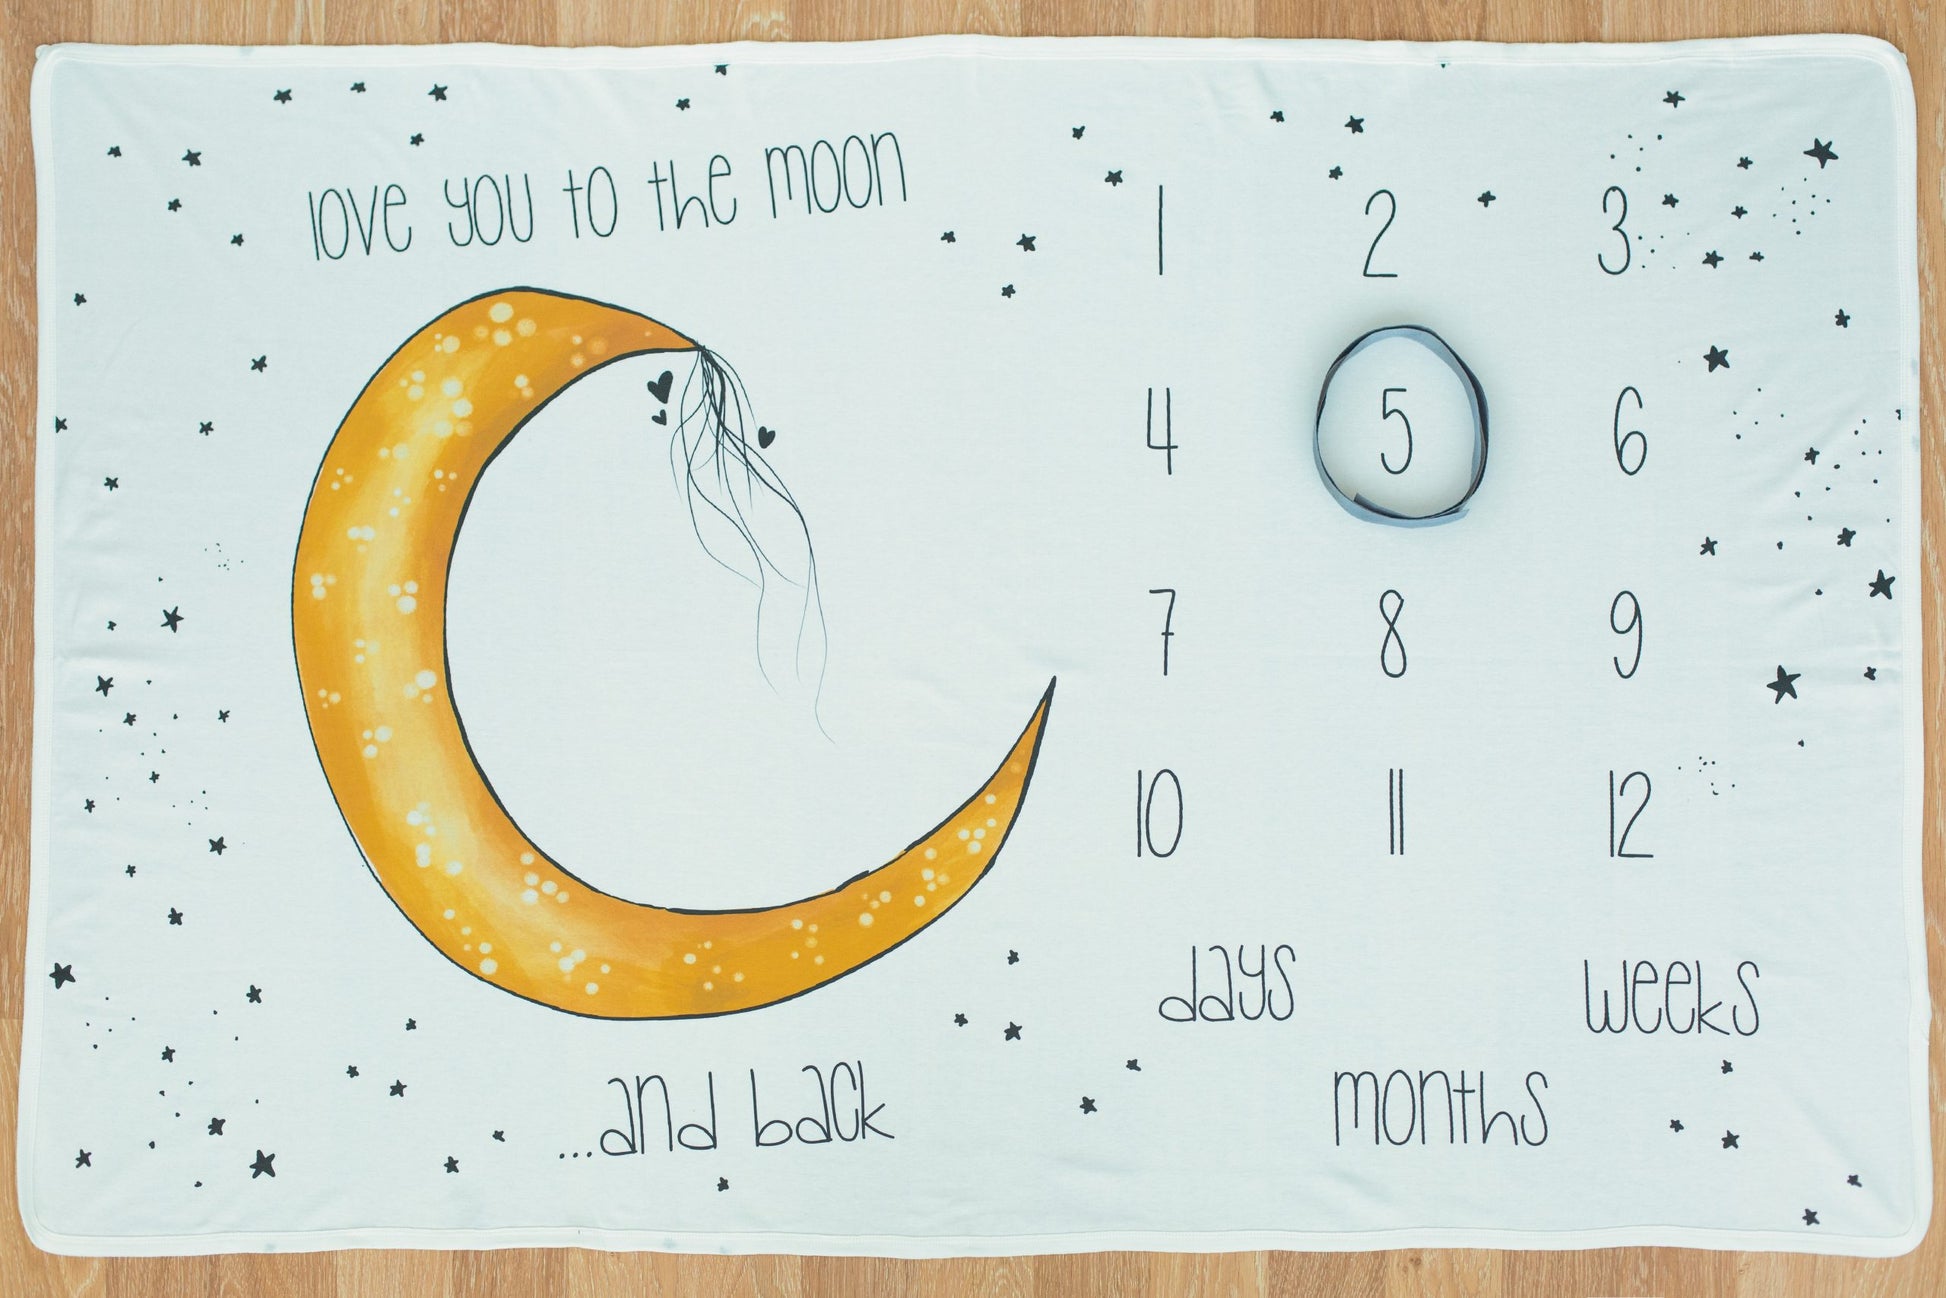 love you to the moon
...and back
1 2 3
4 5 6
7 8 9
10 11 12
days weeks
months